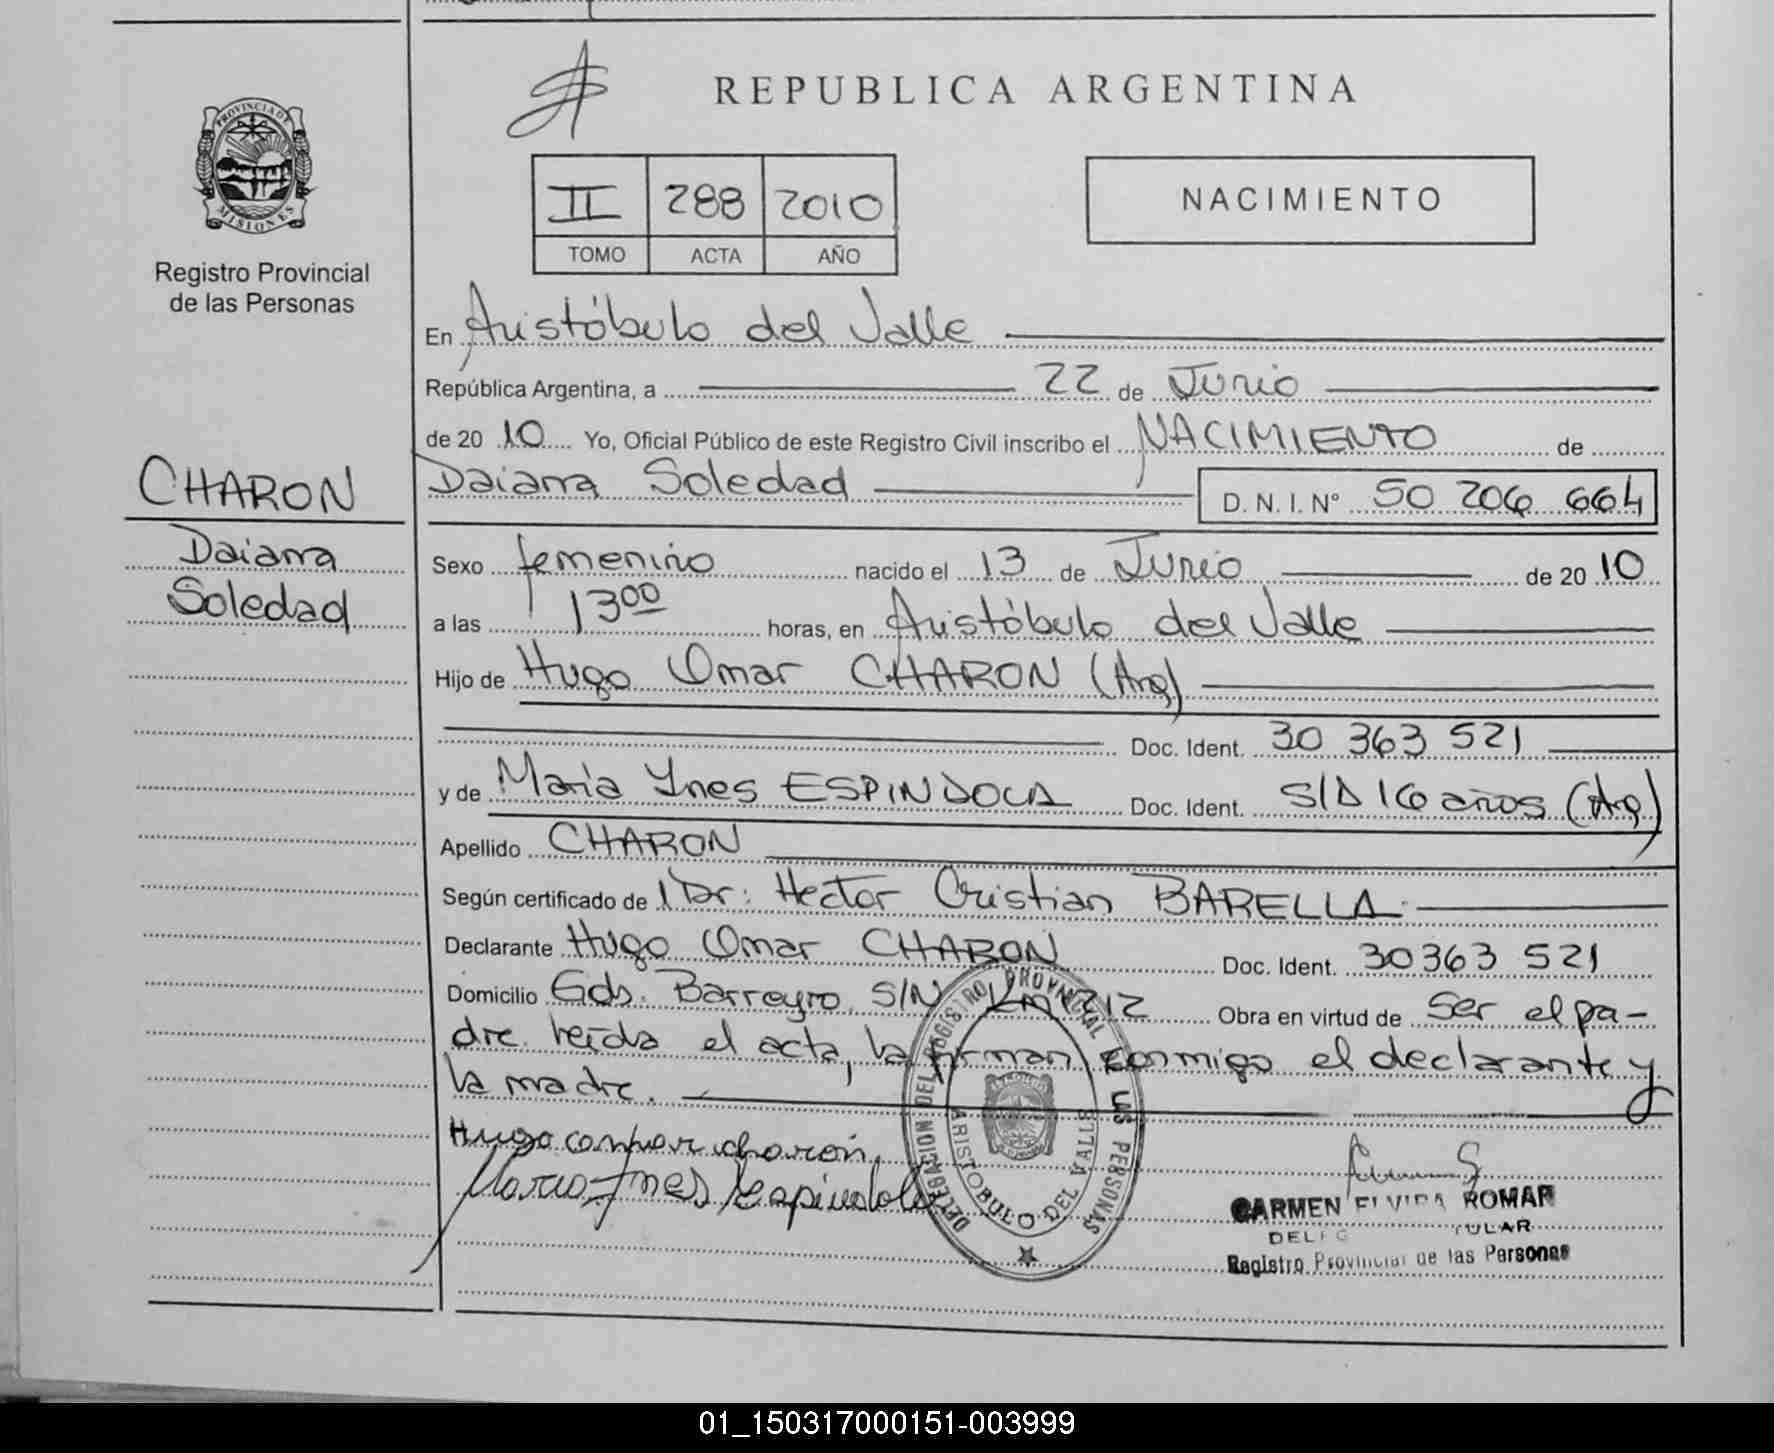 REPUBLICA ARGENTINA
PROVINCIA DE
MISIONES
Registro Provincial
de las Personas
II 288 2010
TOMO ACTA AÑO
NACIMIENTO
En Aristóbulo del Valle
República Argentina, a 22 de Junio
de 20 10 Yo, Oficial Público de este Registro Civil inscribo el NACIMIENTO de
CHARON
Daiana
Soledad
Daiana Soledad D. N. I. Nº 50 206 664
Sexo femenino nacido el 13 de Junio de 20 10
a las 13 00 horas, en Aristóbulo del Valle
Hijo de Hugo Omar CHARON (Arg)
Doc. Ident. 30 363 521
y de Maria Ynes ESPINDOLA Doc. Ident. S/D 16 años (Arg)
Apellido CHARON
Según certificado de l Dr: Hector Cristian BARELLA
Declarante Hugo Omar CHARON Doc. Ident. 30363 521
Domicilio Gdor. Barreyro S/N Km 212 Obra en virtud de ser el pa-
dre. leída el acta, la firman conmigo el declarante y
la madre.
Hugo Omar charon
Maria Ines Espindola
DELEGACION DEL REGISTRO PROVINCIAL DE LAS PERSONAS
ARISTOBULO DEL VALLE
CARMEN ELVIRA ROMAR
Registro Provincial de las Personas
01_150317000151-003999